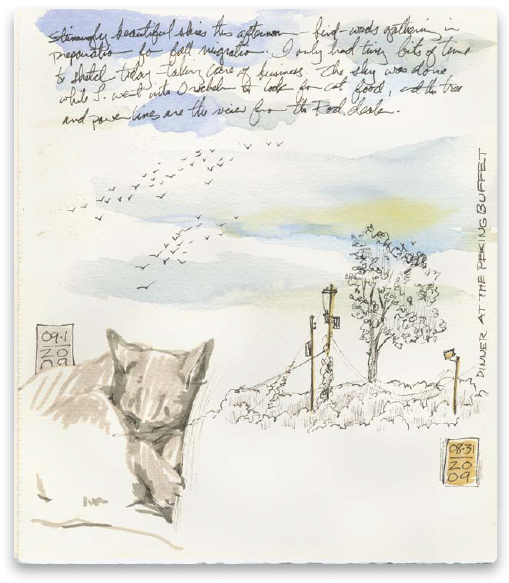 Stunningly beautiful skies this afternoon — bird-wads gathering in
preparation for fall migration. I only had tiny bits of time
to sketch today - taking care of business. The sky was done
while J. went into to look for cat food, and the tree
and power lines are the view from the Ford dealer.
DINNER AT THE PEKING BUFFET
09·1
20
09
08·31
20
09